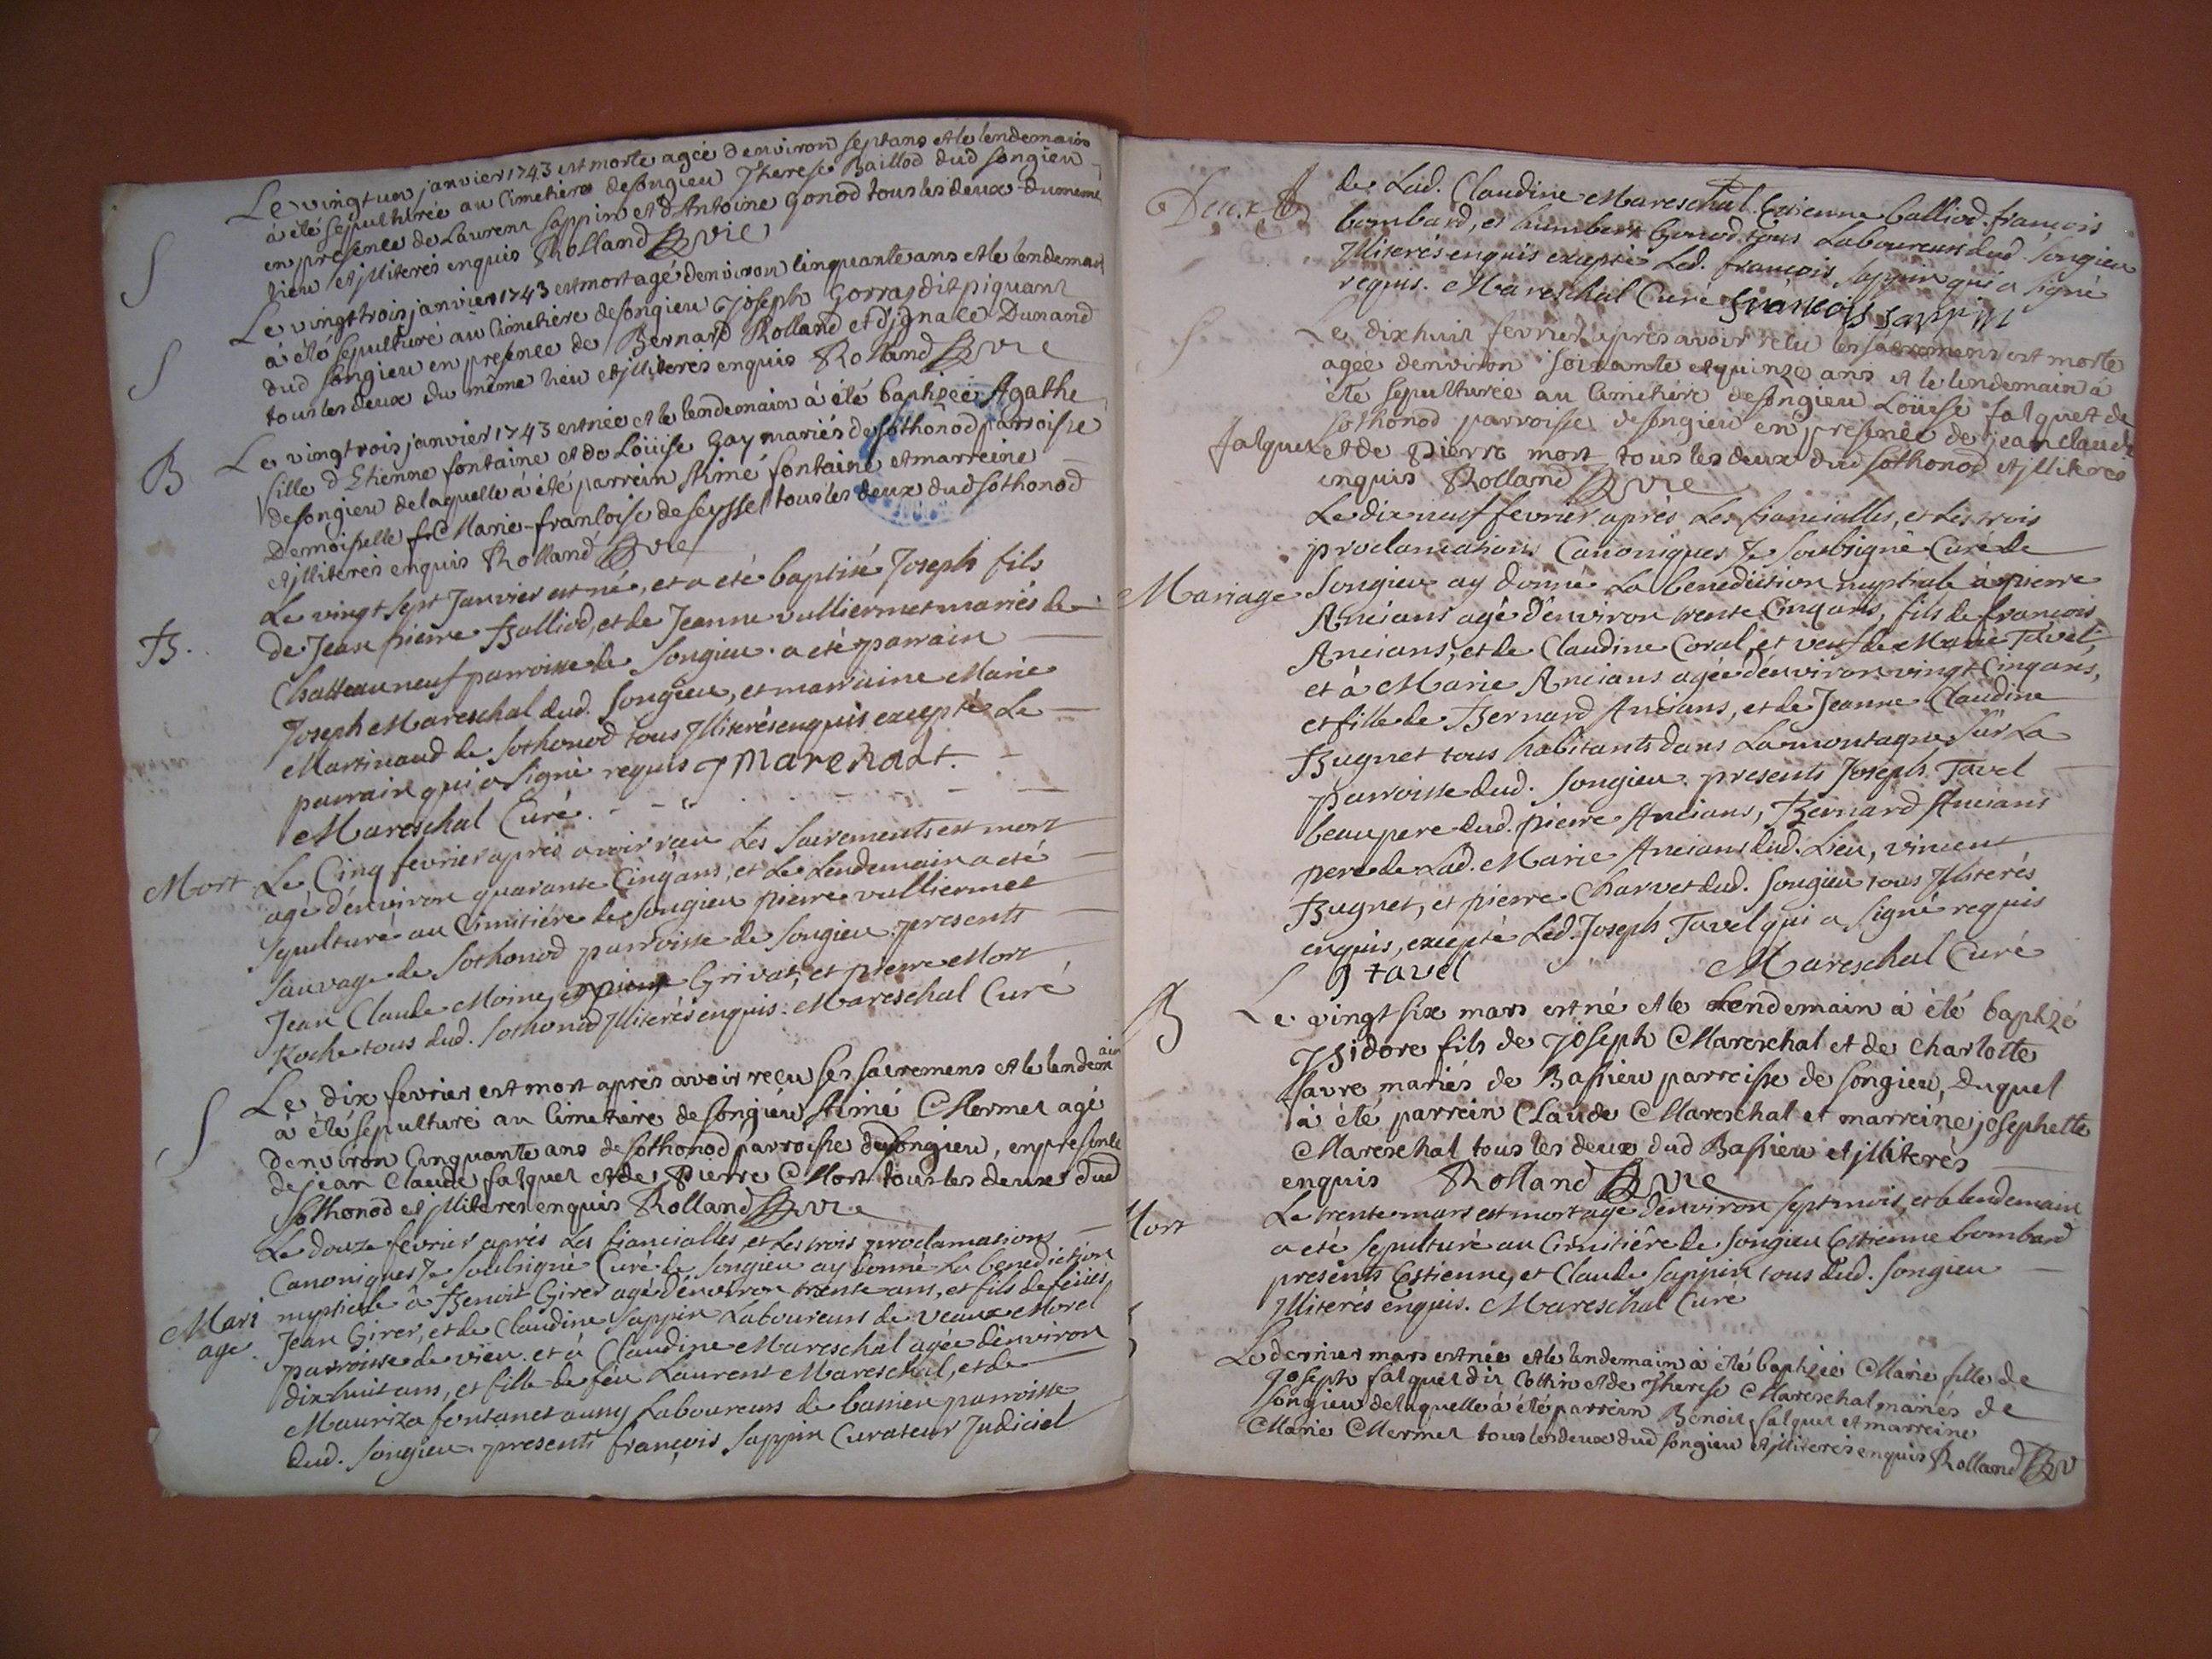 Le vingt un janvier 1743 est morte agée d'environ sept ans et le lendemain
à été sépulturée au Cimetiere de songieu Therese Baillod dud songieu
en presence de Laurent sappin et d'Antoine Gonod tous les deux du meme
S
lieu et jlliterés enquis Rolland vic
Le vingt trois janvier 1743 est mort agé d'environ cinquante ans et le lendemai
à été sepulturé au Cimetiere de songieu joseph Gorraz dit piquant
S
dud songieu en presence de Bernard Rolland et d'jgnace Dunand
tous les deux du même lieu et jlliterés enquis Rolland vic
Le vingt trois janvier 1743 est née et le lendemain à été baptizée Agathe
B
fille d'Etienne fontaine et de Loüise Gay mariés de sothonod parroisse
de songieu de laquelle à été parrein Aimé fontaine et marreine
Demoiselle Marie-francoise de seyssel tous les deux dud sothonod
et jlliterés enquis Rolland vic
Le vingt sept Janvier est né, et a été baptisé Joseph fils
B.
de Jean pierre Balliod, et de Jeanne vulliermet mariés de
Chatteauneuf parroisse de Songieu. a été parrain
Joseph Mareschal dud. Songieu, et marraine Marie
Martinaud de Sothonod tous Jlliterés enquis excepté Le
parrain qui a signé requis J Marechalt.
Mareschal Curé.
Mort
Le Cinq fevrier aprés avoir reçu Les Sacrements est mort
agé d'environ quarante Cinq ans, et Le Lendemain a eté
sepulturé au Cimitiére de Songieu pierre vulliermet
Sauvage de Sothonod parroisse de Songieu. presents
Jean Claude Moine, et pierre Grivat, et pierre Mort
Roche tous dud. Sothonod Jlliterés enquis. Mareschal Curé
Le dix fevrier est mort aprés avoir reçu ses sacremens et le lendemain
S
à été sépulturé au Cimetiere de songieu Aimé Mermet agé
d'environ Cinquante ans de sothonod parroisse de songieu, en presence
de jean Claude falquet et de Pierre Mort tous les deux dud
sothonod et jlliteres enquis Rolland vic
Le douze fevrier aprés Les fiancialles, et Les trois proclamations
Canoniques Je Soubsigné Curé de Songieu ay donné La benediction
nuptiale à Benoit Girer agé d'environ trente ans, et fils de feües
Mari
age.
Jean Girer, et de Claudine Sappin Laboureurs de veaux Morel
parroisse de vieu. et à Claudine Mareschal agée d'environ
dixhuit ans, et fille de feu Laurent Mareschal, et de
Mauriza fontanet aussy Laboureurs de bassieu parroisse
dud. Songieu. presents françois Sappin Curateur Judiciel
de Lad. Claudine Mareschal. Estienne balliod. françois
Deux
bombard, et humbert Gonod tous Laboureurs dud. Songieu
Jlliterés enquis excepté Led. françois Sappin qui a signé
requis. Mareschal Curé francois sappin
S
Le dixhuit fevrier aprés avoir reçu les sacremens est morte
agée d'environ soixante et quinze ans et le lendemain à
été sepulturée au Cimetiere de songieu Loüise falquet de
sothonod parroisse de songieu en presence de jean claude
falquet et de Pierre mort tous les deux dud sothonod et jlliteres
enquis Rolland vic
Le dix neuf fevrier aprés Les fiancialles, et Les trois
proclamations Canoniques Je Soubsigné Curé de
Mariage
Songieu ay donné La benediction nuptiale à pierre
Ancians agé d'environ trente Cinq ans, fils de françois
Ancians, et de Claudine Coral, et veuf de Marie Tavel,
et à Marie Ancians agée d'environ vingt Cinq ans,
et fille de Bernard Ancians, et de Jeanne Claudine
Bugnet tous habitants dans La montagne sur La
parroisse dud. Songieu. presents Joseph Tavel
beaupere dud. pierre Ancians, Bernard Ancians
pere de Lad. Marie Ancians dud. Lieu, vincent
Bugnet, et pierre Charvet dud. Songieu tous Jlliterés
enquis, excepté Led. Joseph Tavel qui a signé requis
J tavel Mareschal Curé
B
Le vingt six mars est né et le Lendemain à été baptizé
Jsidore fils de Joseph Mareschal et de Charlotte
favre, mariés de Bassieu parroisse de songieu, duquel
à été parrein Claude Mareschal et marreine josephette
Mareschal tous les deux dud Bassieu et jlliterés
enquis Rolland vic
Mort
Le trente mars est mort agé d'environ sept mois, et le lendemain
a eté sepulturé au Cimitiére de Songieu Estienne bombard
presents Estienne, et Claude Sappin tous dud. Songieu
Jlliterés enquis. Mareschal Curé
Le dernier mars est née et le lendemain à été baptizée Marie fille de
Joseph falquet dit Cottin et de Therese Mareschal mariés de
songieu de laquelle à été parrein Benoit falquet et marreine
Marie Mermet tous les deux dud songieu et jlliterés enquis Rolland v